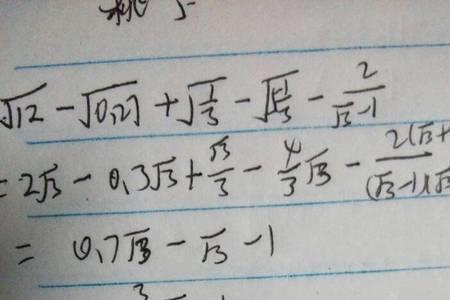 √12 - √0.27 + √(1/3) - √(5 1/3) - 2/(√3-1)
= 2√3 - 0.3√3 + √3/3 - 4/3√3 - 2(√3+
(√3-1)(√3
= 0.7√3 - √3 - 1
3